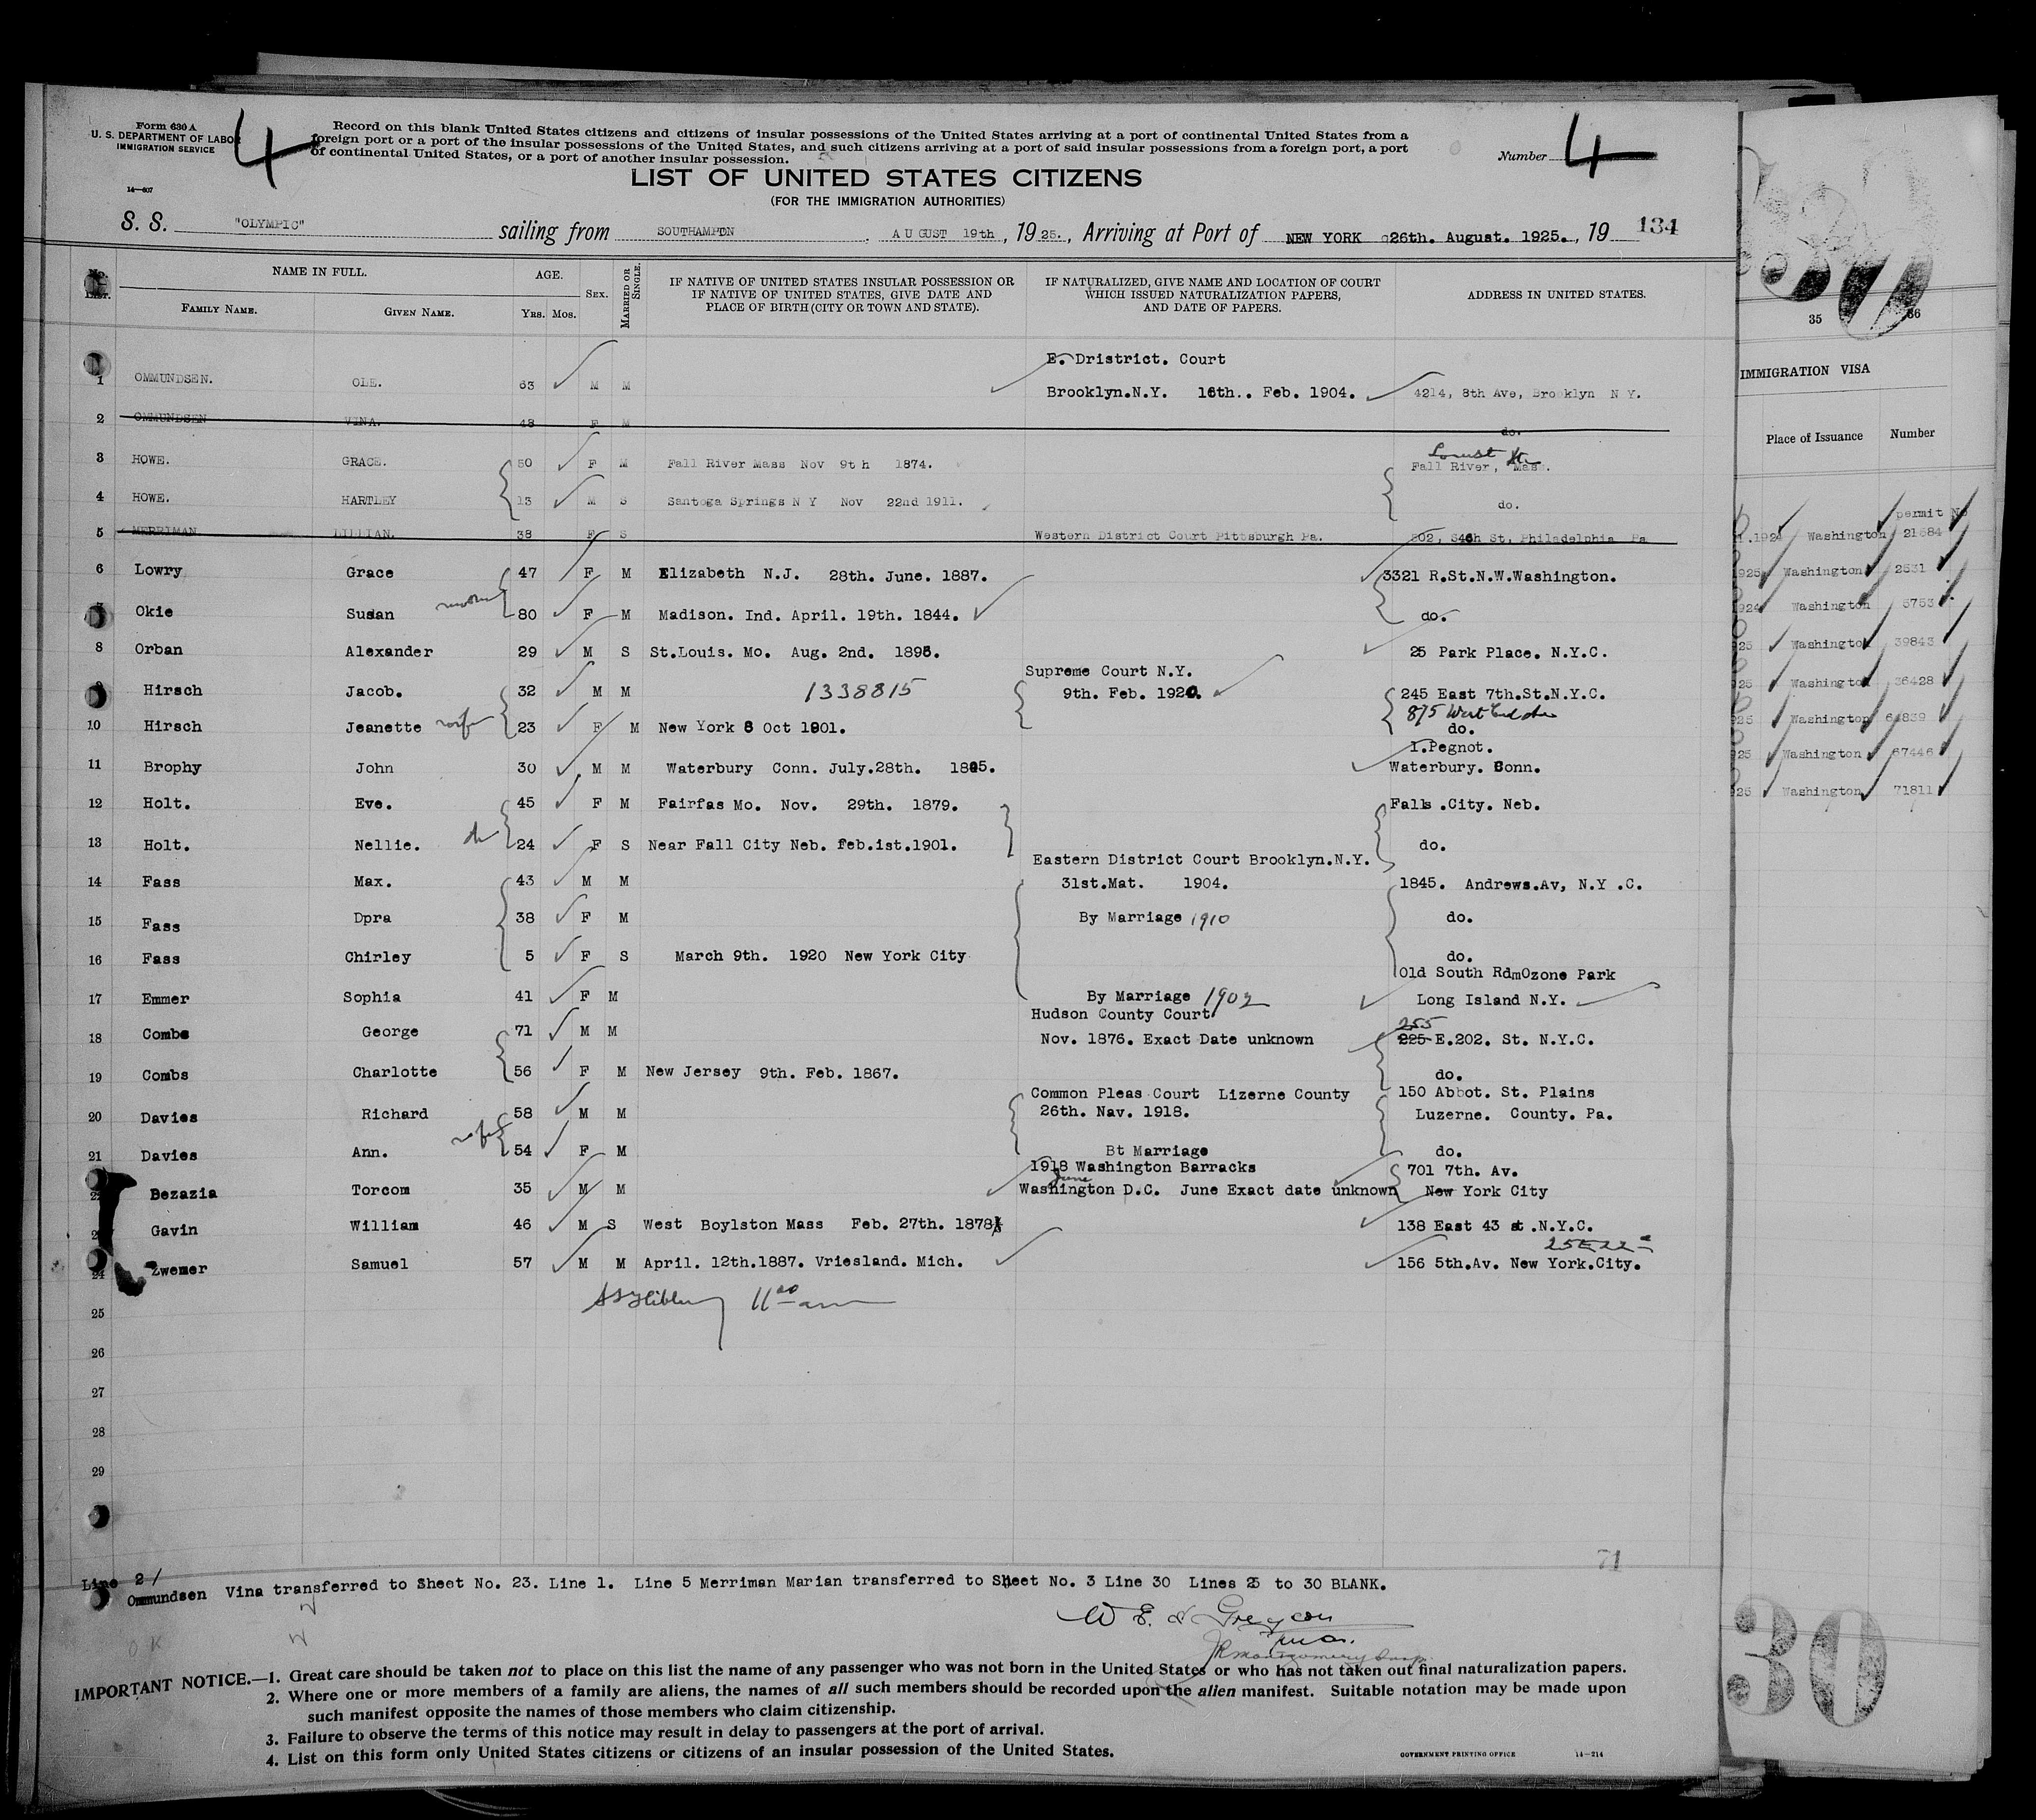 Form 630 A
U. S. DEPARTMENT OF LABOR
IMMIGRATION SERVICE
14—607
4
Record on this blank United States citizens and citizens of insular possessions of the United States arriving at a port of continental United States from a
foreign port or a port of the insular possessions of the United States, and such citizens arriving at a port of said insular possessions from a foreign port, a port
of continental United States, or a port of another insular possession.
Number 4
LIST OF UNITED STATES CITIZENS
(FOR THE IMMIGRATION AUTHORITIES)
S. S. "OLYMPIC" sailing from SOUTHAMPTON, AUGUST 19th, 1925., Arriving at Port of NEW YORK 26th. August. 1925., 19 134
No. LIST. NAME IN FULL. AGE. SEX. MARRIED OR SINGLE. IF NATIVE OF UNITED STATES INSULAR POSSESSION OR IF NATIVE OF UNITED STATES, GIVE DATE AND PLACE OF BIRTH (CITY OR TOWN AND STATE). IF NATURALIZED, GIVE NAME AND LOCATION OF COURT WHICH ISSUED NATURALIZATION PAPERS, AND DATE OF PAPERS. ADDRESS IN UNITED STATES.
FAMILY NAME. GIVEN NAME. YRS. MOS.
E. Dristrict. Court
1 OMMUNDSEN. OLE. 63 M M Brooklyn.N.Y. 16th.. Feb. 1904. 4214, 8th Ave, Brooklyn N Y.
2 OMMUNDSEN VINA. 48 F M do.
Locust St
3 HOWE. GRACE. 50 F M Fall River Mass Nov 9th 1874. Fall River, Mass.
4 HOWE. HARTLEY 13 M S Santoga Springs N Y Nov 22nd 1911. do.
5 MERRIMAN LILLIAN. 38 F S Western District Court Pittsburgh Pa. 502, S46h St, Philadelphia Pa
6 Lowry Grace 47 F M Elizabeth N.J. 28th. June. 1887. 3321 R.St.N.W.Washington.
7 Okie Susan 80 F M Madison. Ind. April. 19th. 1844. do.
8 Orban Alexander 29 M S St.Louis. Mo. Aug. 2nd. 1895. 25 Park Place. N.Y.C.
Supreme Court N.Y.
9 Hirsch Jacob. 32 M M 1338815 9th. Feb. 1920. 245 East 7th.St.N.Y.C.
875 West End Ave
10 Hirsch Jeanette wife 23 F M New York 8 Oct 1901. do.
I.Pegnot.
11 Brophy John 30 M M Waterbury Conn. July.28th. 1895. Waterbury. Conn.
12 Holt. Eve. 45 F M Fairfas Mo. Nov. 29th. 1879. Falls .City. Neb.
13 Holt. Nellie. 24 F S Near Fall City Neb. Feb.1st.1901. do.
Eastern District Court Brooklyn.N.Y.
14 Fass Max. 43 M M 31st.Mat. 1904. 1845. Andrews.Av, N.Y .C.
15 Fass Dpra 38 F M By Marriage 1910 do.
16 Fass Chirley 5 F S March 9th. 1920 New York City do.
Old South RdmOzone Park
17 Emmer Sophia 41 F M By Marriage 1902 Long Island N.Y.
Hudson County Court
255
18 Combs George 71 M M Nov. 1876. Exact Date unknown 225 E.202. St. N.Y.C.
19 Combs Charlotte 56 F M New Jersey 9th. Feb. 1867. do.
Common Pleas Court Lizerne County 150 Abbot. St. Plains
20 Davies Richard 58 M M 26th. Nav. 1918. Luzerne. County. Pa.
21 Davies Ann. wife 54 F M Bt Marriage do.
1918 Washington Barracks 701 7th. Av.
June
22 Bezazia Torcom 35 M M Washington D.C. June Exact date unknown New York City
23 Gavin William 46 M S West Boylston Mass Feb. 27th. 1878 138 East 43 st .N.Y.C.
25 E 22
24 Zwemer Samuel 57 M M April. 12th.1887. Vriesland. Mich. 156 5th.Av. New York.City.
11 00 am
25
26
27
28
29
71
Line 2/
Ommundsen Vina transferred to Sheet No. 23. Line 1. Line 5 Merriman Marian transferred to Sheet No. 3 Line 30 Lines 25 to 30 BLANK.
OK
IMPORTANT NOTICE.—1. Great care should be taken not to place on this list the name of any passenger who was not born in the United States or who has not taken out final naturalization papers.
2. Where one or more members of a family are aliens, the names of all such members should be recorded upon the alien manifest. Suitable notation may be made upon
such manifest opposite the names of those members who claim citizenship.
3. Failure to observe the terms of this notice may result in delay to passengers at the port of arrival.
4. List on this form only United States citizens or citizens of an insular possession of the United States.
GOVERNMENT PRINTING OFFICE 14—214
35 36
IMMIGRATION VISA
Place of Issuance Number
permit No
Washington 21684
925 Washington 2531
924 Washington 5753
25 Washington 39843
25 Washington 36428
25 Washington 64839
25 Washington 67446
25 Washington 71811
30